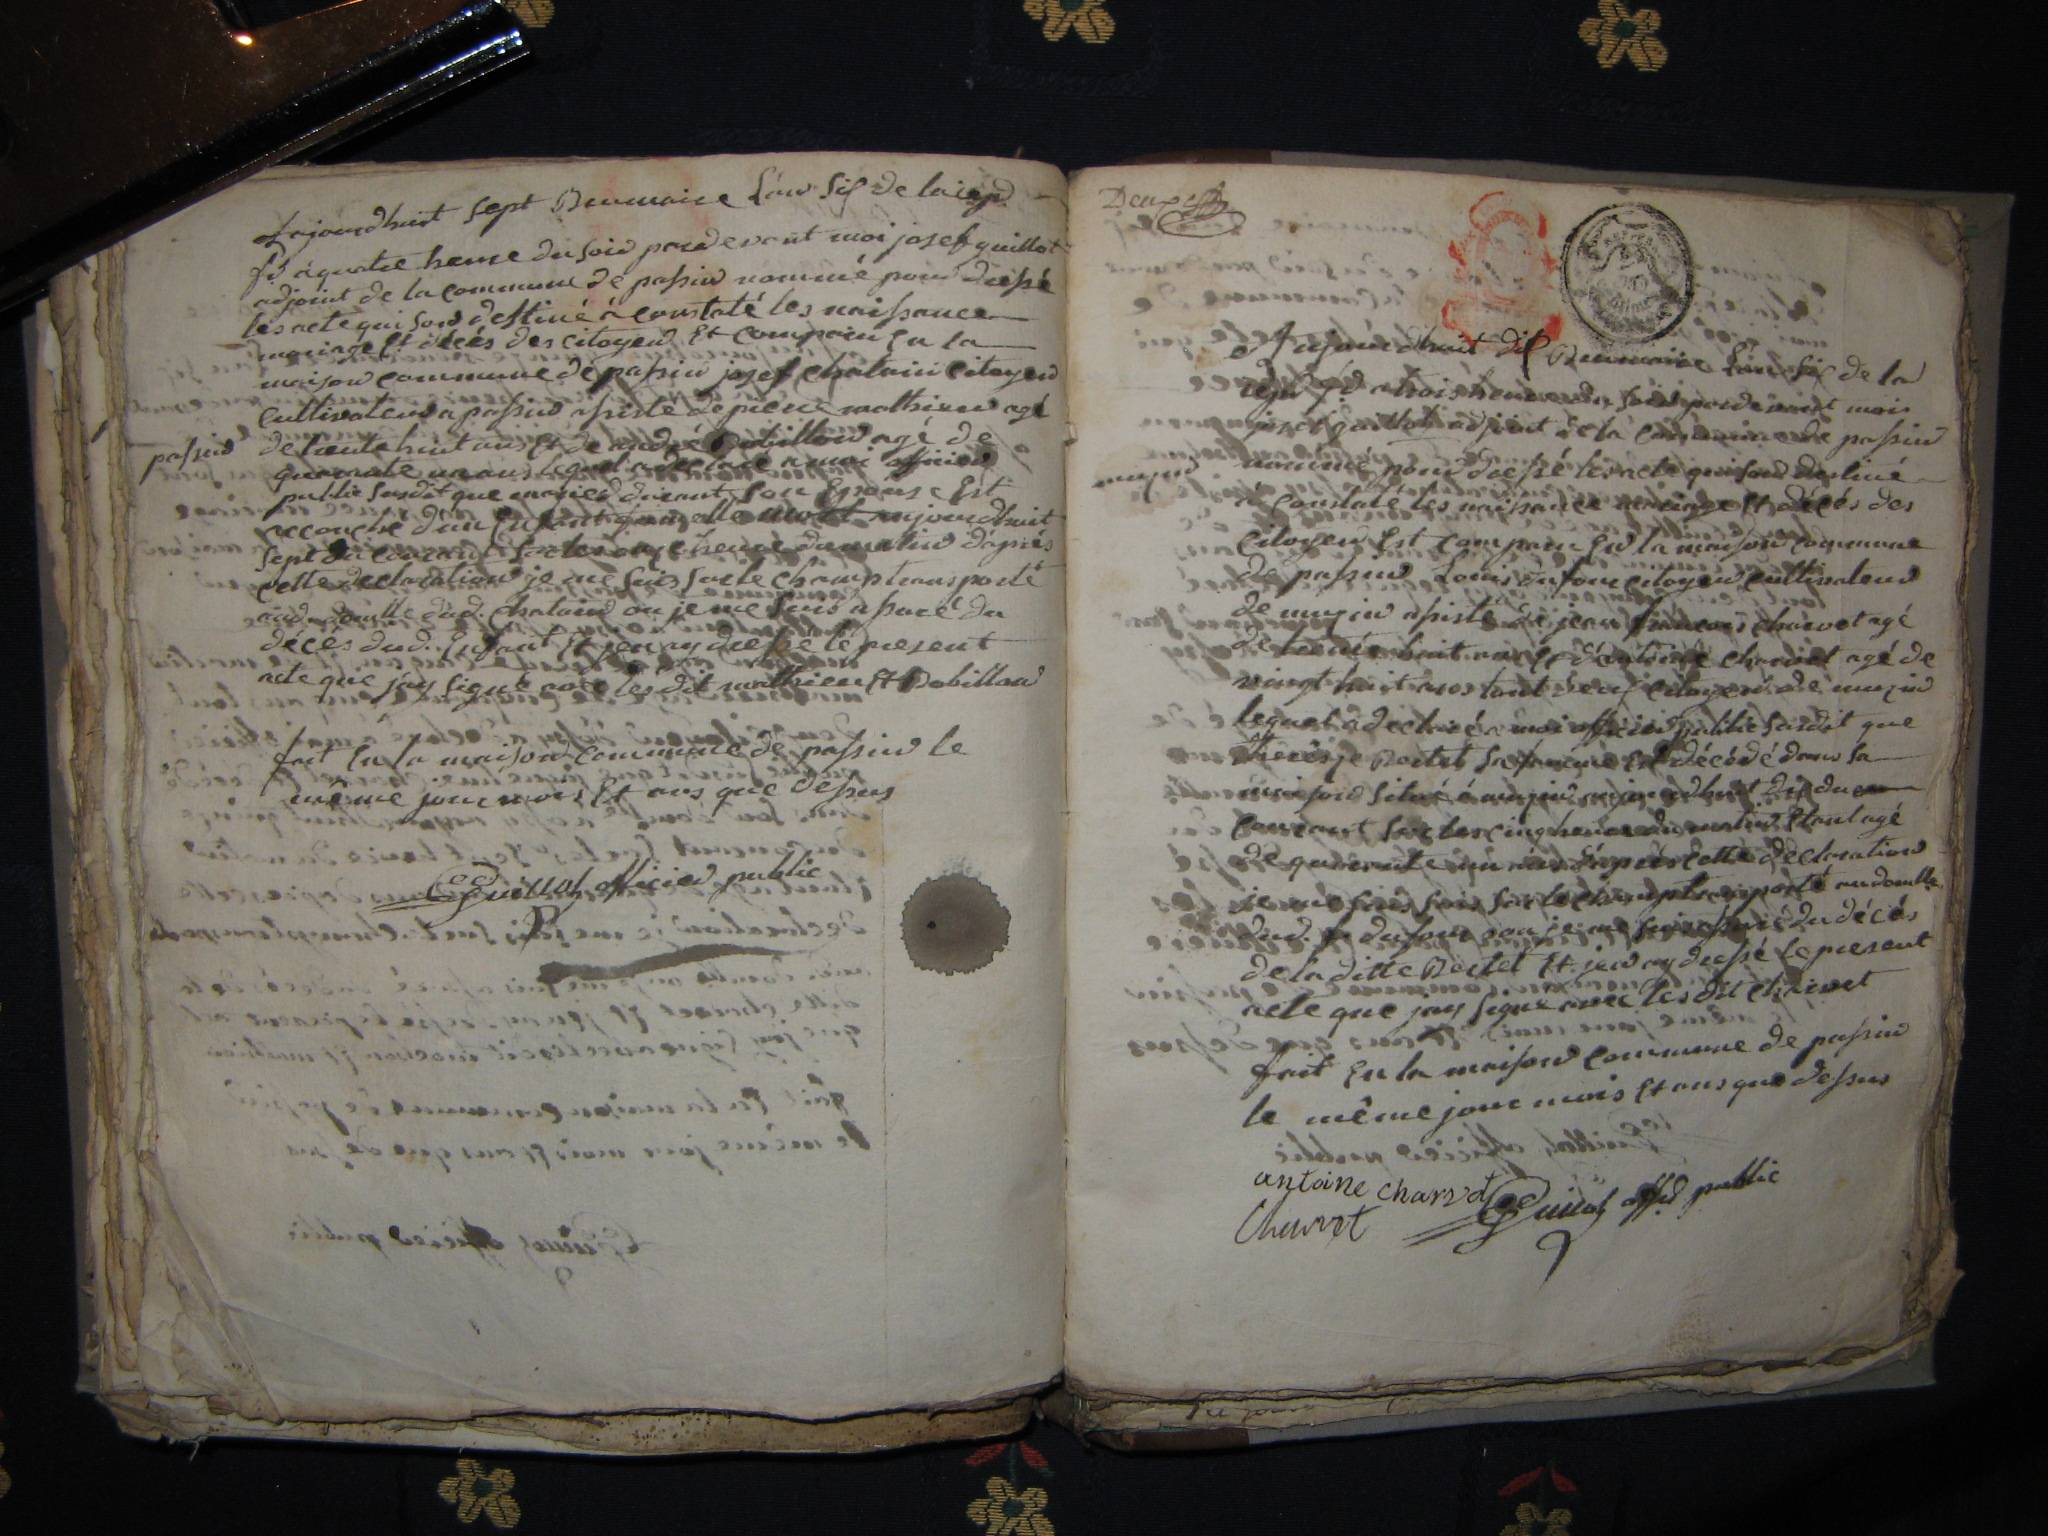 Aujourdhuit sept Brumaire l'an six de la rep.
fs à quatre heure du soir pardevant moi josef guillot
adjoint de la commune de passin nommé pour dressé
les acte qui sont destiné à constaté les naissance
mariage Et décés des citoyen Et comparu En la
maison commune de passin josef chatain citoyen
cultivateur a passin assisté de pierre mathieu agé
passin
de trente huit ans Et de andré Bobillon agé de
quarante un ans lequel a declaré a moi officier
public susdit que son Epouse Est
accouché d'un Enfant mort aujourdhuit
sept du courant sur les onze heure du matin d'après
cette declaration je me suis sur le champ transporté
aud. domlle dud. chatain ou je me suis assuré du
décés dud. Enfant Et j'en ay dressé le present
acte que j'ay signé avec les dit mathieu Et Bobillon
fait En la maison commune de passin le
même jour mois Et ans que dessus
Guillot officier public
Deux
Aujourdhuit dix Brumaire l'an six de la
rep. fs a trois heure du soir pardevant mois
josef guillot adjoint de la commune de passin
muzin
nommé pour dressé les acte qui sont destiné
à constaté les naissance mariage Et décés des
citoyen Est comparu En la maison commune
de passin Louis Dufour citoyen cultivateur
de muzin assisté de jean françois charvet agé
de trente huit ans Et d'antoine charvet agé de
vingt huit ans tout deux citoyen de muzin
lequel a declaré a moi officier public susdit que
therese Bertet sa femme Est décédé dans sa
maison situé à muzin aujourdhuit dix du
courant sur les cinq heure du matin Etant agé
de quarante un ans d'après cette declaration
je me suis sur le champ transporté au domlle
dud. dufour ou je me suis assuré du décés
de la ditte Bertet Et j'en ay dressé le present
acte que j'ay signé avec les dit charvet
fait En la maison commune de passin
le même jour mois Et ans que dessus
antoine charvet Guillot offid public
Charvet